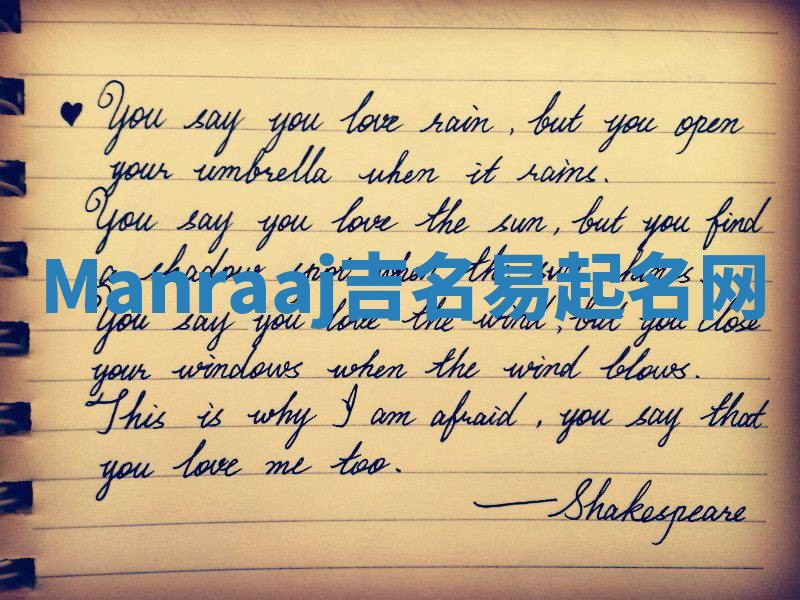 ♥ You say you love rain, but you open
your umbrella when it rains.
You say you love the sun, but you find
a shadow spot when the sun shines.
Manraaj吉名易起名网
You say you love the wind, but you close
your windows when the wind blows.
This is why I am afraid, you say that
you love me too.
—Shakespeare